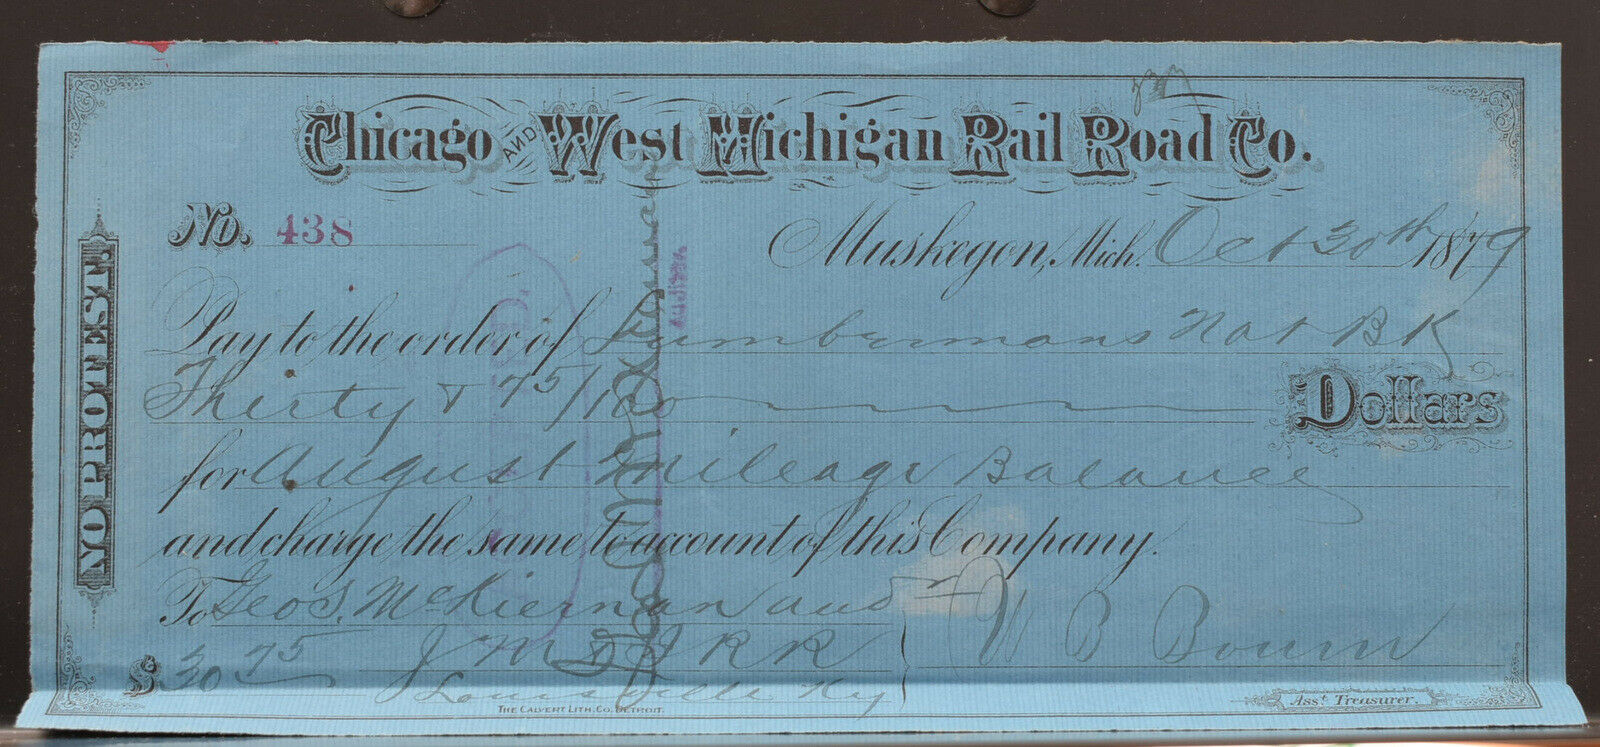 Chicago AND West Michigan Rail Road Co.
No. 438
Muskegon, Mich. Oct 30th 1879
NO PROTEST
Pay to the order of Lumbermans Nat BK
Thirty & 75/100 Dollars
for August Mileage Balance
and charge the same to account of this Company.
To Geo S. McKiernan aud
J M & I R R
Louisville Ky
$ 30 75
W B Bourn
Asst. Treasurer.
THE CALVERT LITH. CO. DETROIT.